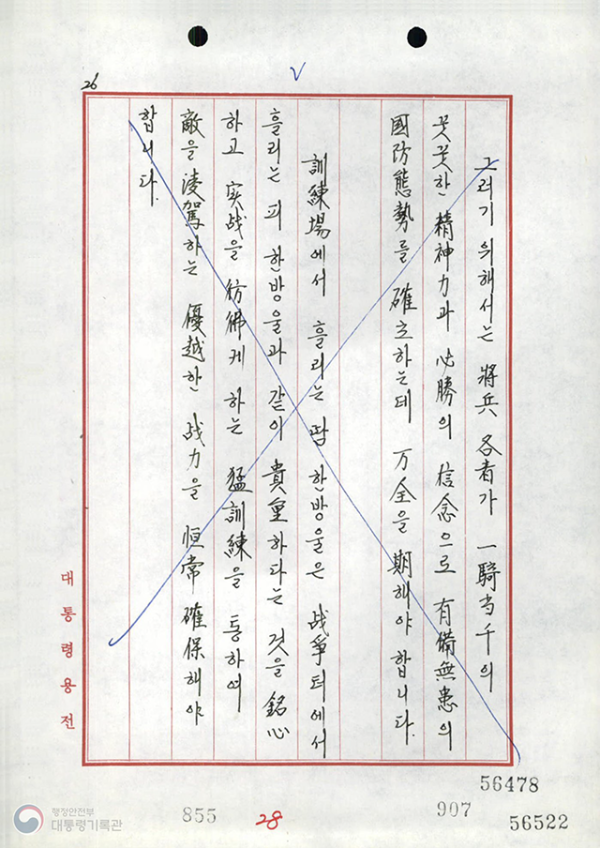 26
V
그러기 위해서는 將兵 各者가 一騎当千의
꿋꿋한 精神力과 必勝의 信念으로 有備無患의
國防態勢를 確立하는데 万全을 期해야 합니다.
訓練場에서 흘리는 땀 한방울은 战爭터에서
흘리는 피 한방울과 같이 貴重하다는 것을 銘心
하고 実战을 彷彿케 하는 猛訓練을 통하여
敵을 凌駕하는 優越한 战力을 恒常 確保해야
합니다.
대통령용전
56478
855
28
907
56522
행정안전부
대통령기록관